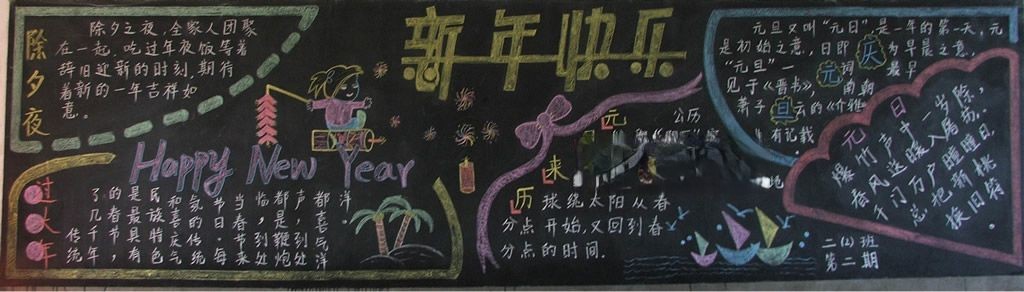 新年快乐
除夕夜
除夕之夜,全家人团聚
在一起,吃过年夜饭等着
辞旧迎新的时刻,期待
着新的一年吉祥如
意。
Happy New Year
过大年
传统
了几千年,
的春节,
是最具有
民族特色
和喜庆气
氛的传统
节日.每
当春节来
临,到处
都是鞭炮
声,到处
都喜气洋
洋.
元
来
历
公历
地
球绕太阳从春
分点开始,又回到春
分点的时间.
元旦又叫“元日”是一年的第一天,元
是初始之意,日即 为早晨之意.
“元旦”一 词 最早
见于《晋书》 南朝
萧子 云的《介雅
》有记载
元
旦
庆
元日
爆竹声中一岁除,
春风送暖入屠苏.
千门万户曈曈日,
总把新桃
换旧符.
二(2)班
第二期